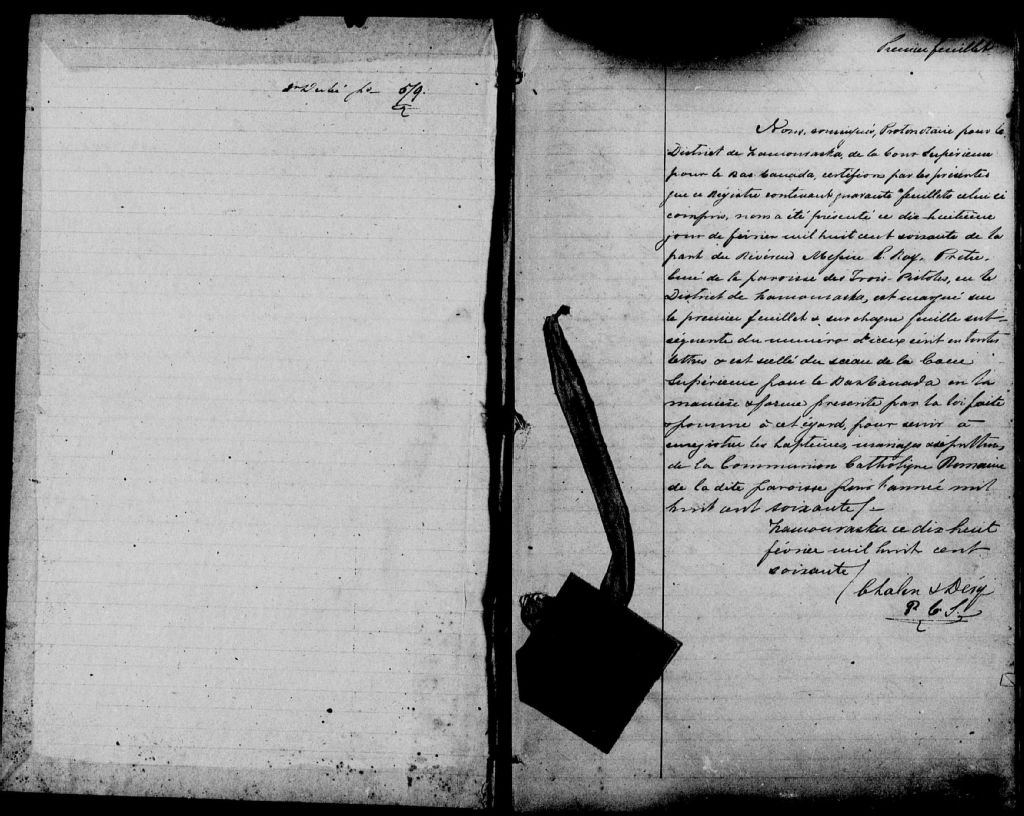 5/9.
Premier feuillet
Nous, soussigné, Protonotaire pour le
District de Kamouraska, de la Cour Supérieure
pour le Bas Canada, certifions par les présentes
que ce Registre contenant quarante feuillets celui ci
compris, nous a été présenté ce dix-huitième
jour de février mil huit cent soixante de la
part du Révérend Messire L. Roy. Prêtre.
Curé de la paroisse des Trois-Pistoles, en le
District de Kamouraska, est marqué sur
le premier feuillet & sur chaque feuille sub-
séquente du numéro d'iceux écrit en toutes
lettres & est scellé du sceau de la Cour
Supérieure pour le Bas Canada en la
manière & forme prescrite par la loi faite
& pourvue à cet égard, pour servir à
enregistrer les baptêmes, mariages & sépultures,
de la Communion Catholique Romaine
de la dite paroisse pour l'année mil
huit cent soixante /-
Kamouraska ce dix huit
février mil huit cent
soixante /
P. C. S.